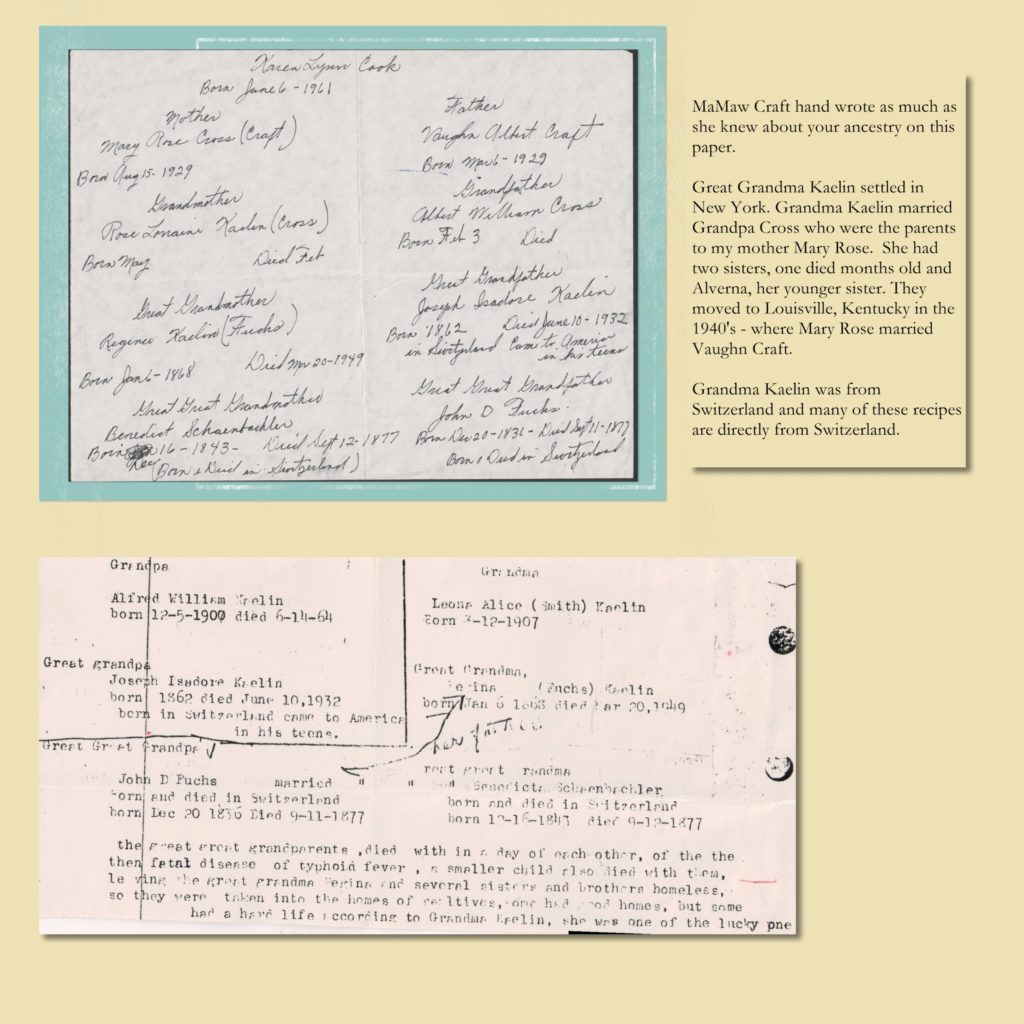 Karen Lynn Cook
Born June 6 - 1961
Mother
Mary Rose Cross (Craft)
Born Aug 15 - 1929
Grandmother
Rose Lorraine Kaelin (Cross)
Born May Died Feb
Great Grandmother
Reginee Kaelin (Fuchs)
Born Jan 6 - 1868 Died Mar 20 - 1949
Great Great Grandmother
Benedict Schaenbachler
Born 16 - 1843 - Died Sept 12 - 1877
Dec (Born & Died in Switzerland)
Father
Vaughn Albert Craft
Born Mar 6 - 1929
Grandfather
Albert William Cross
Born Feb 3 Died
Great Grandfather
Joseph Isadore Kaelin
Born 1862 Died June 10 - 1932
in Switzerland Came to America
in his teens
Great Great Grandfather
John D Fuchs.
Born Dec 20 - 1836 - Died Sept 11 - 1877
Born & Died in Switzerland
MaMaw Craft hand wrote as much as
she knew about your ancestry on this
paper.
Great Grandma Kaelin settled in
New York. Grandma Kaelin married
Grandpa Cross who were the parents
to my mother Mary Rose. She had
two sisters, one died months old and
Alverna, her younger sister. They
moved to Louisville, Kentucky in the
1940's - where Mary Rose married
Vaughn Craft.
Grandma Kaelin was from
Switzerland and many of these recipes
are directly from Switzerland.
Grandpa
Alfred William Kaelin
born 12-5-1900 died 6-14-64
Grandma
Leona Alice (Smith) Kaelin
Born 3-12-1907
Great grandpa
Joseph Isadore Kaelin
born 1862 died June 10,1932
born in Switzerland came to America
in his teens.
Great Grandma,
(Fuchs) Kaelin
born Jan 6 1868 died ar 20,1949
her father
Great Great Grandpa
John D Fuchs married " "
Born and died in Switzerland
born Dec 20 1836 Died 9-11-1877
reat great randma
Benedicta Schaenbachler
born and died in Switzerland
born 12-16-1843 died 9-12-1877
the great great grandparents ,died with in a day of each other, of the the
then fatal disease of typhoid fever , a smaller child also died with them,
le ving the great grandma Regina and several sisters and brothers homeless,
so they were taken into the homes of realtives, one had good homes, but some
had a hard life according to Grandma Kaelin, she was one of the lucky one